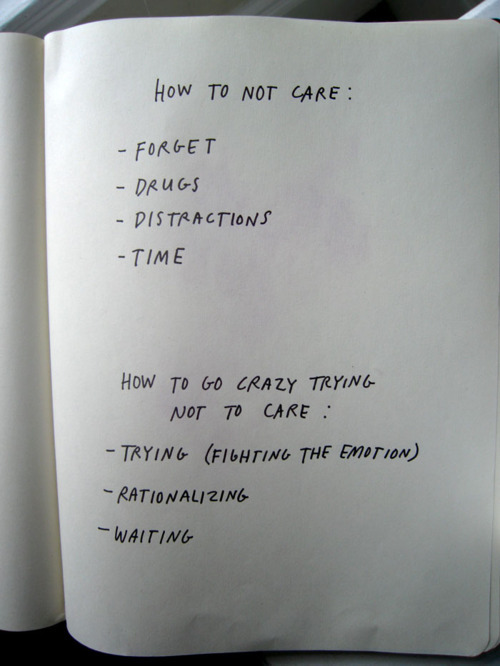 HOW TO NOT CARE:
- FORGET
- DRUGS
- DISTRACTIONS
- TIME
HOW TO GO CRAZY TRYING
NOT TO CARE:
- TRYING (FIGHTING THE EMOTION)
- RATIONALIZING
- WAITING